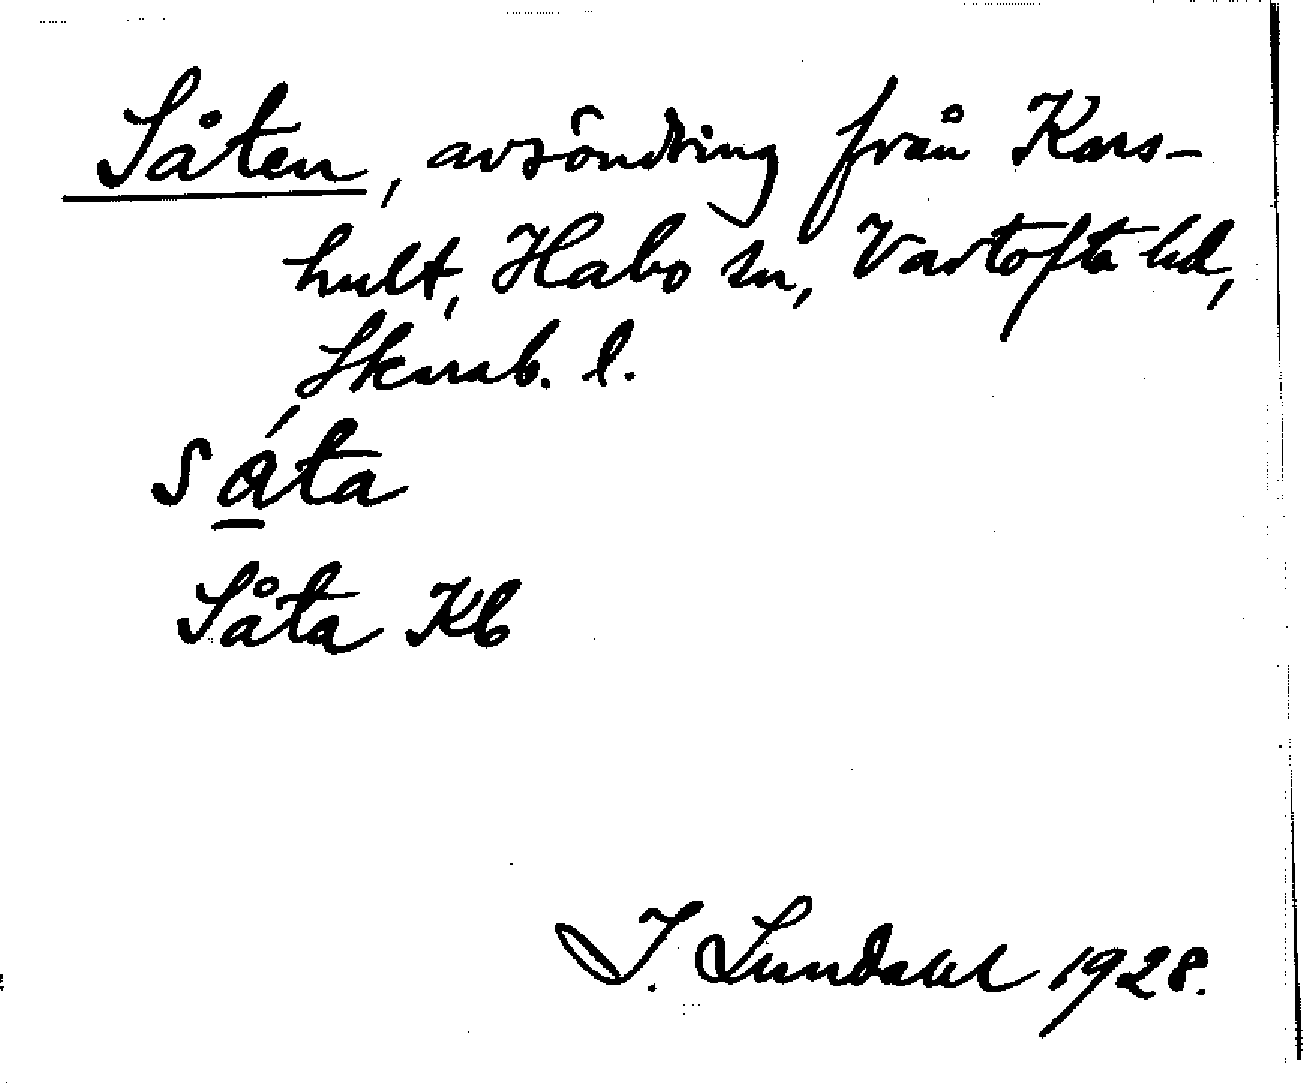 Såten, avsöndring från Kors-
hult, Habo sn, Vartofta hd,
Skarab. l.
såta
Såta Kb
I. Lundahl 1928.